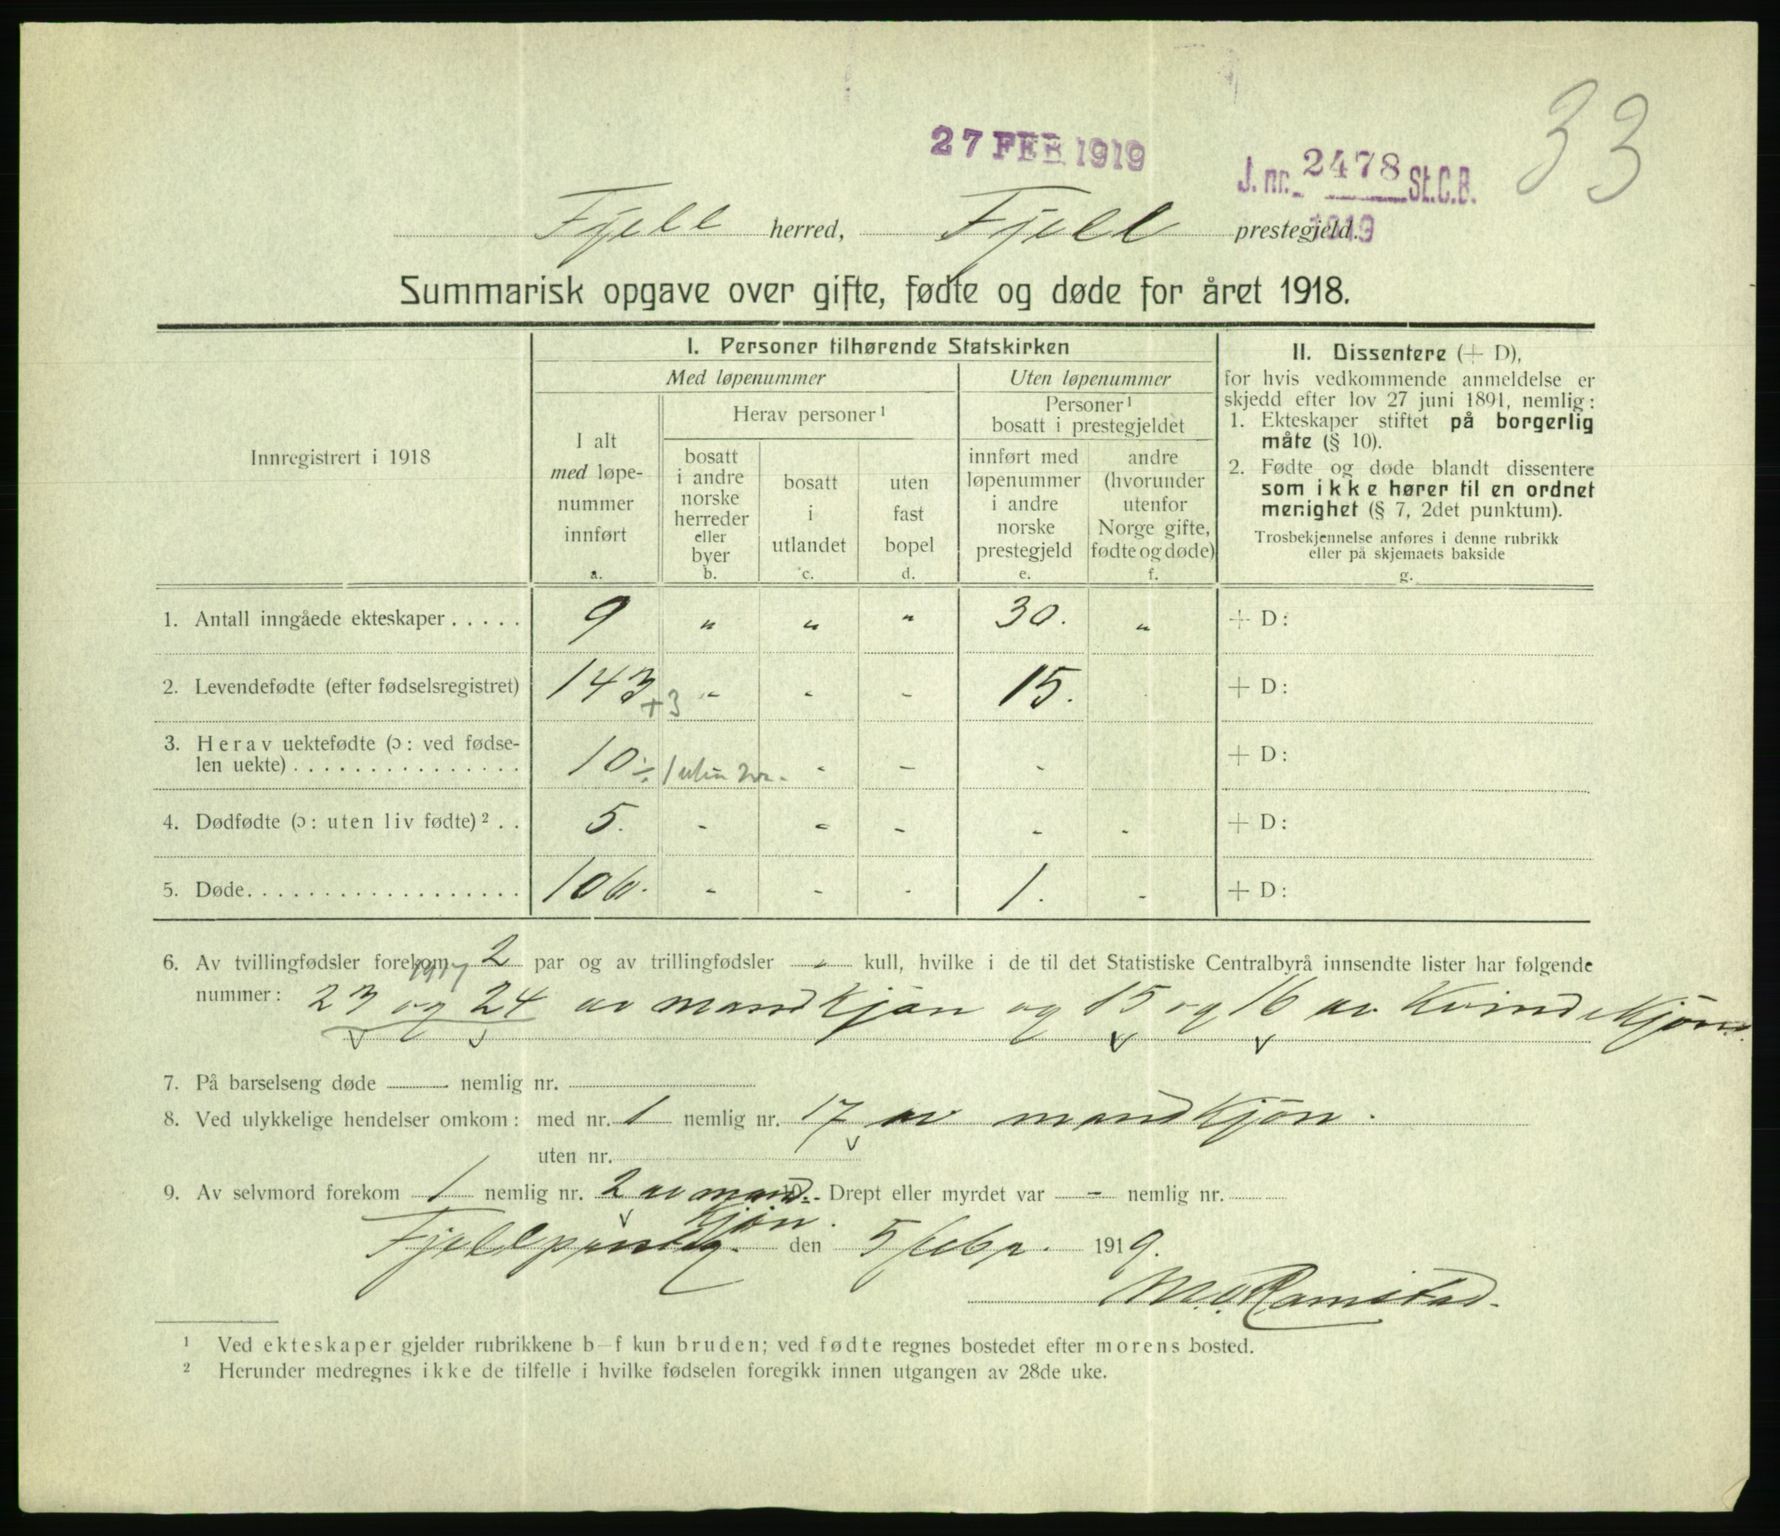 33
27 FEB 1919
J. nr. 2478 St.C.B.
1919
Fjell herred, Fjell prestegjeld.
Summarisk opgave over gifte, fødte og døde for året 1918.
Innregistrert i 1918
I. Personer tilhørende Statskirken
Med løpenummer
Uten løpenummer
I alt
med løpe-
nummer
innført
a.
Herav personer ¹
bosatt
i andre
norske
herreder
eller
byer
b.
bosatt
i
utlandet
c.
uten
fast
bopel
d.
Personer ¹
bosatt i prestegjeldet
innført med
løpenummer
i andre
norske
prestegjeld
e.
andre
(hvorunder
utenfor
Norge gifte,
fødte og døde)
f.
II. Dissentere (+ D),
for hvis vedkommende anmeldelse er
skjedd efter lov 27 juni 1891, nemlig:
1. Ekteskaper stiftet på borgerlig
måte (§ 10).
2. Fødte og døde blandt dissentere
som ikke hører til en ordnet
menighet (§ 7, 2det punktum).
Trosbekjennelse anføres i denne rubrikk
eller på skjemaets bakside
g.
1. Antall inngåede ekteskaper . . . . . 9 " " " 30. " + D:
2. Levendefødte (efter fødselsregistret) 143 +3 - - - 15. + D:
3. Herav uektefødte (ɔ: ved fødse-
len uekte) . . . . . . . . . . . . . . . 10 ÷ 1 - - - + D:
4. Dødfødte (ɔ: uten liv fødte) ² . . 5. - - - - - + D:
5. Døde . . . . . . . . . . . . . . . . . . 106. - - - 1. - + D:
6. Av tvillingfødsler forekom 2 par og av trillingfødsler - kull, hvilke i de til det Statistiske Centralbyrå innsendte lister har følgende
nummer: 23 og 24 av mandkjøn og 15 og 16 av Kvindekjøn.
7. På barselseng døde nemlig nr.
8. Ved ulykkelige hendelser omkom: med nr. 1 nemlig nr. 17 av mandkjøn.
uten nr.
9. Av selvmord forekom 1 nemlig nr. 2 av mand- Drept eller myrdet var - nemlig nr.
kjøn.
den 5 febr. 1919.
M. O. Ramstad.
¹ Ved ekteskaper gjelder rubrikkene b–f kun bruden; ved fødte regnes bostedet efter morens bosted.
² Herunder medregnes ikke de tilfelle i hvilke fødselen foregikk innen utgangen av 28de uke.